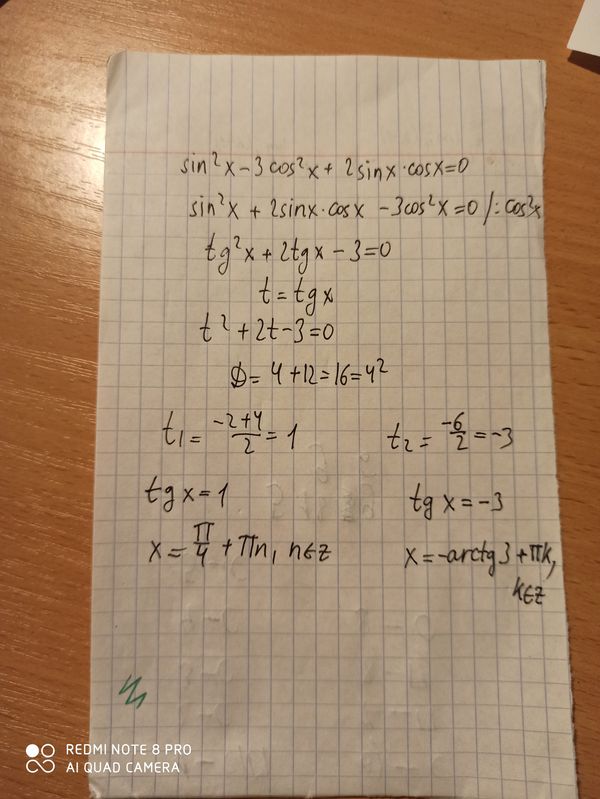 sin²x − 3cos²x + 2sinx·cosx=0
sin²x + 2sinx·cosx − 3cos²x=0 /:cos²x
tg²x + 2tgx − 3=0
t = tgx
t² + 2t−3=0
D= 4+12=16=4²
t₁= (-2+4)/2 = 1 t₂= (-6)/2 = -3
tg x=1 tg x=-3
x= π/4 + πn, n∈z x=-arctg3+πk,
k∈z
REDMI NOTE 8 PRO
AI QUAD CAMERA